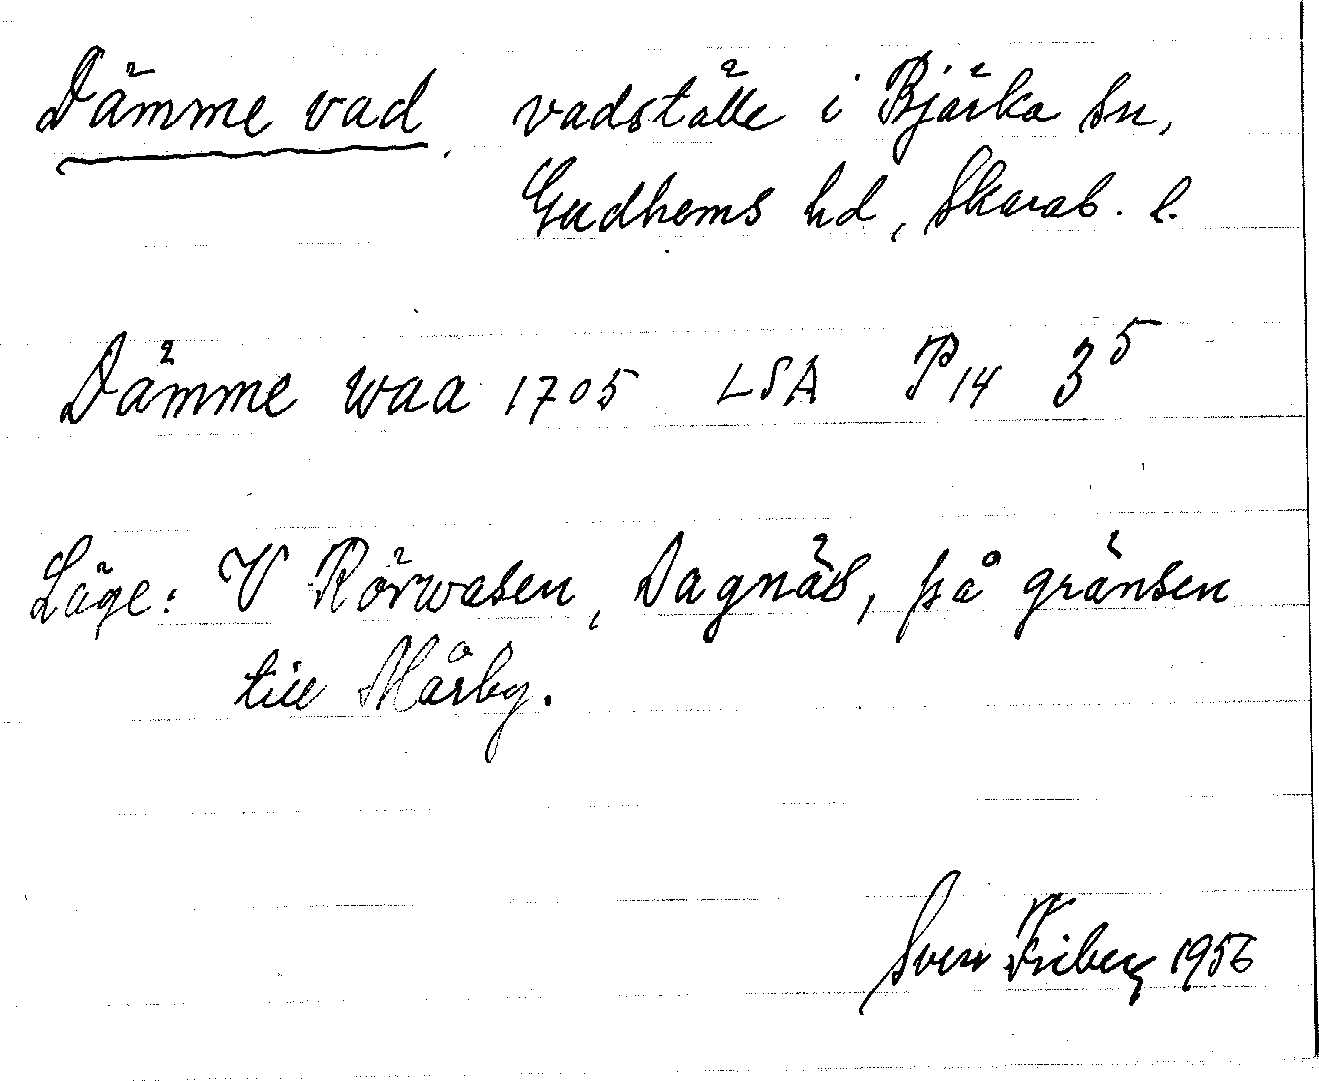 Dämme vad, vadställe i Bjärka sn,
Gudhems hd, Skarab. l.
Dämme waa 1705 LSA P14 3⁵
Läge: V Rörwasen, Dagnäs, på gränsen
till Mårby.
Sven Friberg 1956